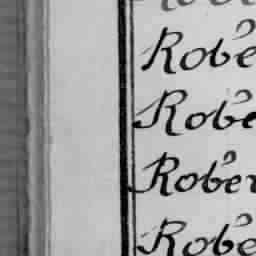 Robe
Robe
Rober
Robe